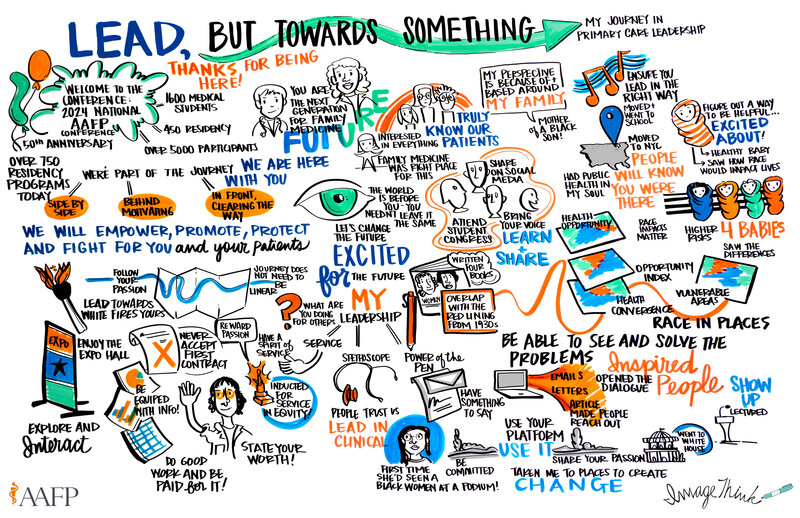 LEAD, BUT TOWARDS SOMETHING
MY JOURNEY IN
PRIMARY CARE LEADERSHIP
THANKS FOR BEING
HERE!
WELCOME TO THE
CONFERENCE:
2024 NATIONAL
AAFP
CONFERENCE
50TH ANNIVERSARY
1600 MEDICAL
STUDENTS
450 RESIDENCY
OVER 5000 PARTICIPANTS
OVER 750
RESIDENCY
PROGRAMS
TODAY
WE'RE PART OF THE JOURNEY
SIDE BY
SIDE
BEHIND
MOTIVATING
IN FRONT,
CLEARING THE
WAY
WE ARE HERE
WITH YOU
WE WILL EMPOWER, PROMOTE, PROTECT
AND FIGHT FOR YOU and your patients
YOU ARE
THE NEXT
GENERATION
FOR FAMILY
MEDICINE
FUTURE
INTERESTED
IN EVERYTHING
TRULY
KNOW OUR
PATIENTS
FAMILY MEDICINE
WAS RIGHT PLACE
FOR THIS
MY PERSPECINE
IS BECAUSE OF +
BASED AROUND
MY FAMILY
MOTHER
OF A BLACK
SON!
ENSURE YOU
LEAD IN THE
RIGHT WAY
MOVED +
WENT TO
SCHOOL
MOVED
TO NYC
HAD PUBLIC
HEALTH IN
MY SOUL
PEOPLE
WILL KNOW
YOU WERE
THERE
FIGURE OUT A WAY
TO BE HELPFUL...
EXCITED
ABOUT!
HEALTHY BABY
SAW HOW RACE
WOULD IMPACT LIVES
HIGHER
RISKS
4 BABIES
THE WORLD
IS BEFORE
YOU - YOU
NEEDN'T LEAVE IT
THE SAME
LET'S CHANGE
THE FUTURE
SHARE
ON SOCIAL
MEDIA
ATTEND
STUDENT
CONGRESS!
BRING
YOUR VOICE
LEARN
+
SHARE
HEALTH
OPPORTUNITY
RACE
IMPACTS
MATTER
SAW THE
DIFFERENCES
OPPORTUNITY
INDEX
HEALTH
CONVERGENCE
VULNERABLE
AREAS
RACE IN PLACES
EXCITED
for THE FUTURE
FOLLOW
YOUR
PASSION
JOURNEY DOES
NOT NEED TO
BE LINEAR
LEAD TOWARDS
WHAT FIRES YOURS
EXPO
ENJOY THE
EXPO HALL
EXPLORE AND
Interact
NEVER
ACCEPT
FIRST
CONTRACT
REWARD
PASSION
BE
EQUIPED
WITH INFO!
DO GOOD
WORK AND BE
PAID for IT!
STATE YOUR
WORTH!
WHAT ARE
YOU DOING
FOR OTHERS
HAVE A
SPIRIT OF
SERVICE
INDUCTED
FOR SERVICE
IN EQUITY!
MY
LEADERSHIP
SERVICE
STETHSCOPE
POWER of the
PEN
PEOPLE TRUST US
LEAD IN
CLINICAL
WRITTEN
FOUR
BOOKS
WOMEN
OVERLAP
WITH THE
RED LINING
FROM 1930s
HAVE
SOMETHING
TO SAY
BE ABLE TO SEE AND SOLVE THE
PROBLEMS
EMAILS
LETTERS
ARTICLE
MADE PEOPLE
REACH OUT
OPENED THE
DIALOGUE
Inspired
People
SHOW
UP
LECTURED
FIRST TIME
SHE'D SEEN A
BLACK WOMEN AT A PODIUM!
BE
COMMITTED
USE YOUR
PLATFORM
USE IT
SHARE YOUR PASSION
WENT TO
WHITE
HOUSE
TAKEN ME TO PLACES TO CREATE
CHANGE
AAFP
ImageThink